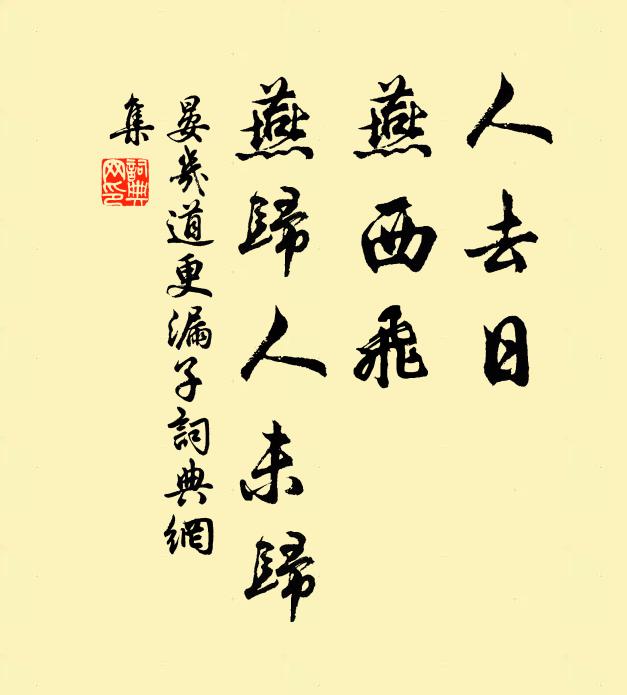 人去日
燕西飛
燕歸人未歸
晏幾道更漏子詞典網
集
詞典
网印